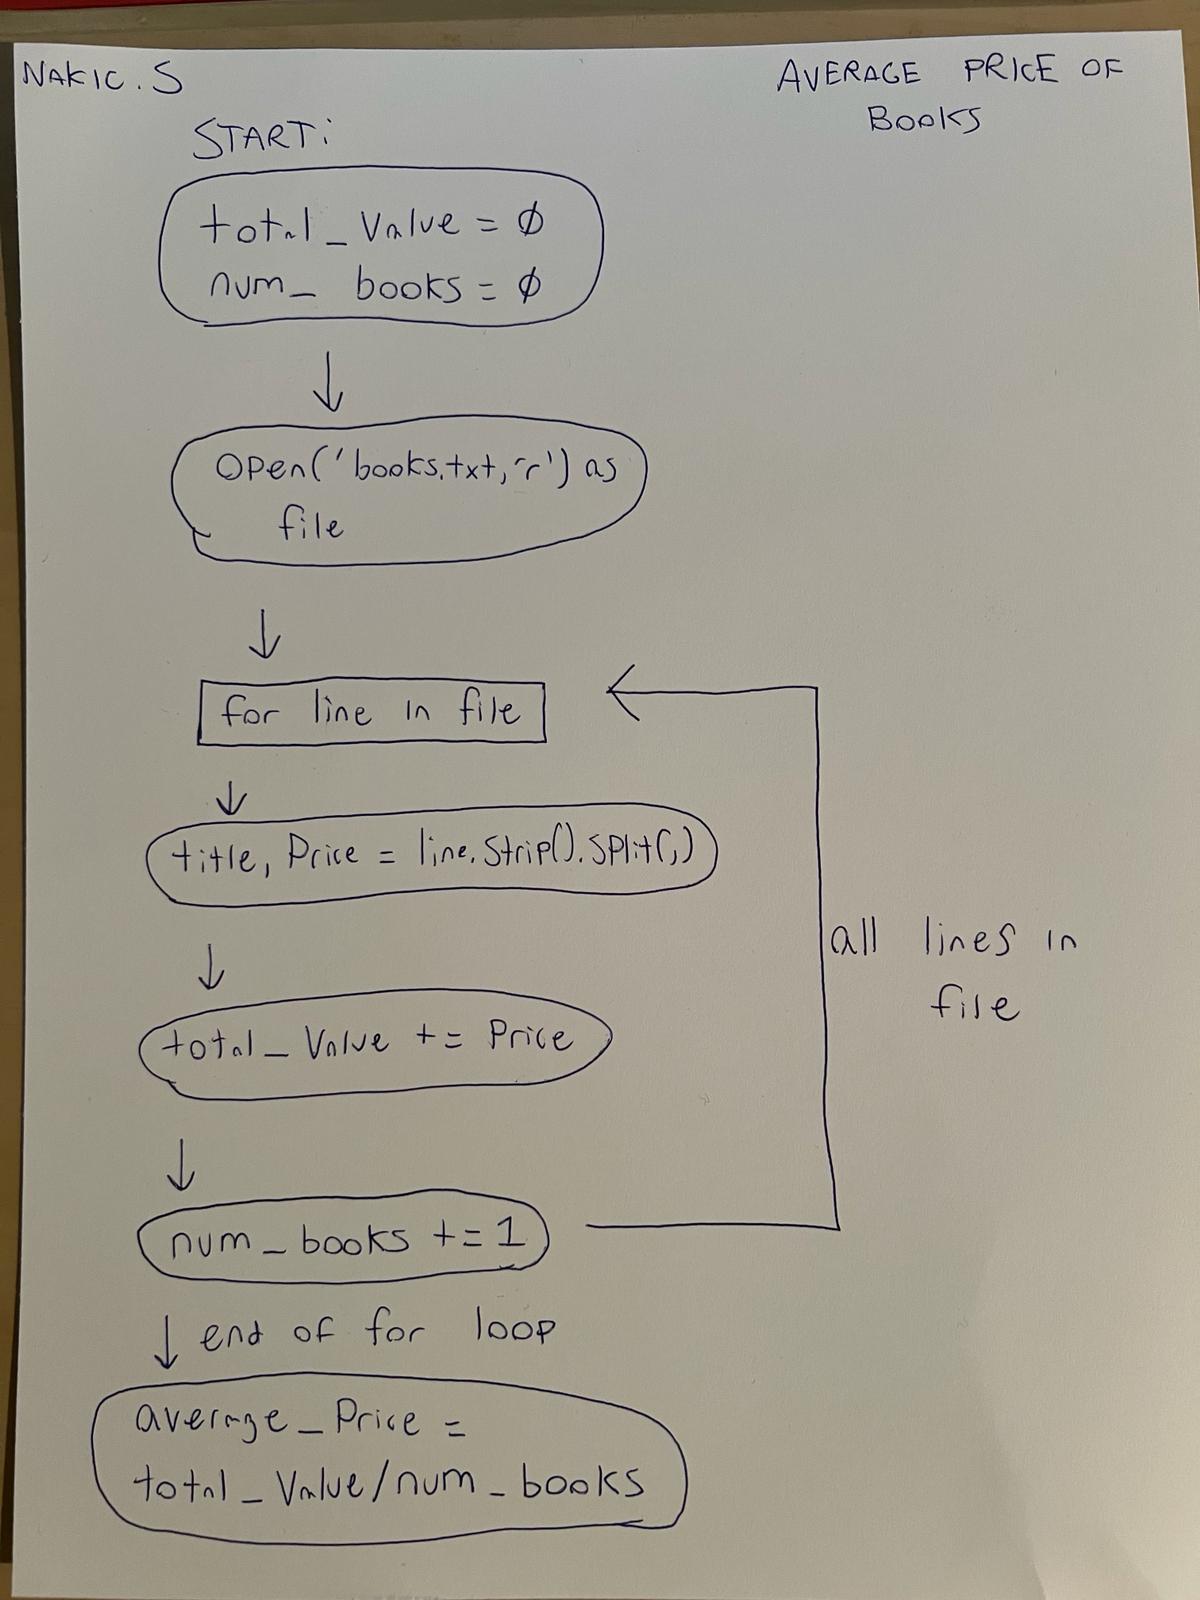 NAKIC.S
AVERAGE PRICE OF
BOOKS
START:
total_Value = Ø
num_ books = Ø
Open('books.txt,'r') as
file
for line in file
title, Price = line.Strip().Split(,)
total_Value += Price
all lines in
file
num_books +=1
end of for loop
average_Price =
total_Value/num_books